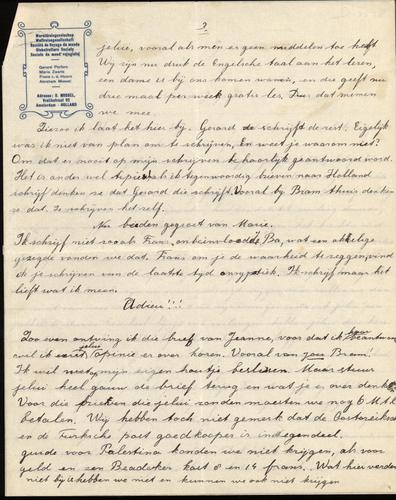 Wereldreisgenootschap
Weltreisegesellschaft
Société de Voyage du monde
Globetrotters Society
Societo de mond'vojagistoj
Gerard Perfors
Maria Zwarts
Frans v. d. Hoorn
Abraham Mossel
Adresse: S. MOSSEL
Amsterdam - HOLLAND
jelui, vooral als men er geen middelen toe heeft
Wij zijn nu druk de Engelsche taal aan het leren,
een dame er bij ons komen wonen, en die geeft nu
drie maal per week gratis les. Fijn dat nemen
we mee.
Ziezoo ik laat het hier bij. Gerard de schrijft de rest. Eigelijk
was ik niet van plan om te schrijven, En weet je waarom niet?
Om dat er nooit op mijn schrijven behoorlijk geantwoord word.
Het is ander wel typies als ik tegenwoordig brieven naar Holland
schrijf denken ze dat Gerard die schrijft. Vooral bij Bram thuis denken
ze dat. Ze schrijven het zelf.
Nu beiden gegroet van Marie.
Ik schrijf niet zooals Frans, onbeinvloed, Ba, wat een akelige
gezegde vonden we dat. Frans om je de waarheid te zeggen, vind
ik je schrijven van de laatste tyd onsympatiek. Ik schrijf maar het
liefst wat ik meen.
Adieu!!!
Zoo even ontving ik die brief van Jeanne, voor dat ik haar beantwoord
wil ik eerst jelui opinie er over horen. Vooral van jou Bram!
Ik wil niet op mijn eigen houtje beslissen. Maar stuur
jelui heel gauw de brief terug en wat je er over denkt
Voor die brieven die jelui zonden moesten we nog 6 M.l.
betalen. Wij hebben toch niet gemerkt dat de Oostenrijksche
en de Turksche post goedkooper is integendeel.
guide voor Palestina konden we niet krijgen, als voor
geld en een Beadeker kost 8 en 14 frans. Wat hier verder
niet bij is hebben we niet en kunnen we ook niet krijgen